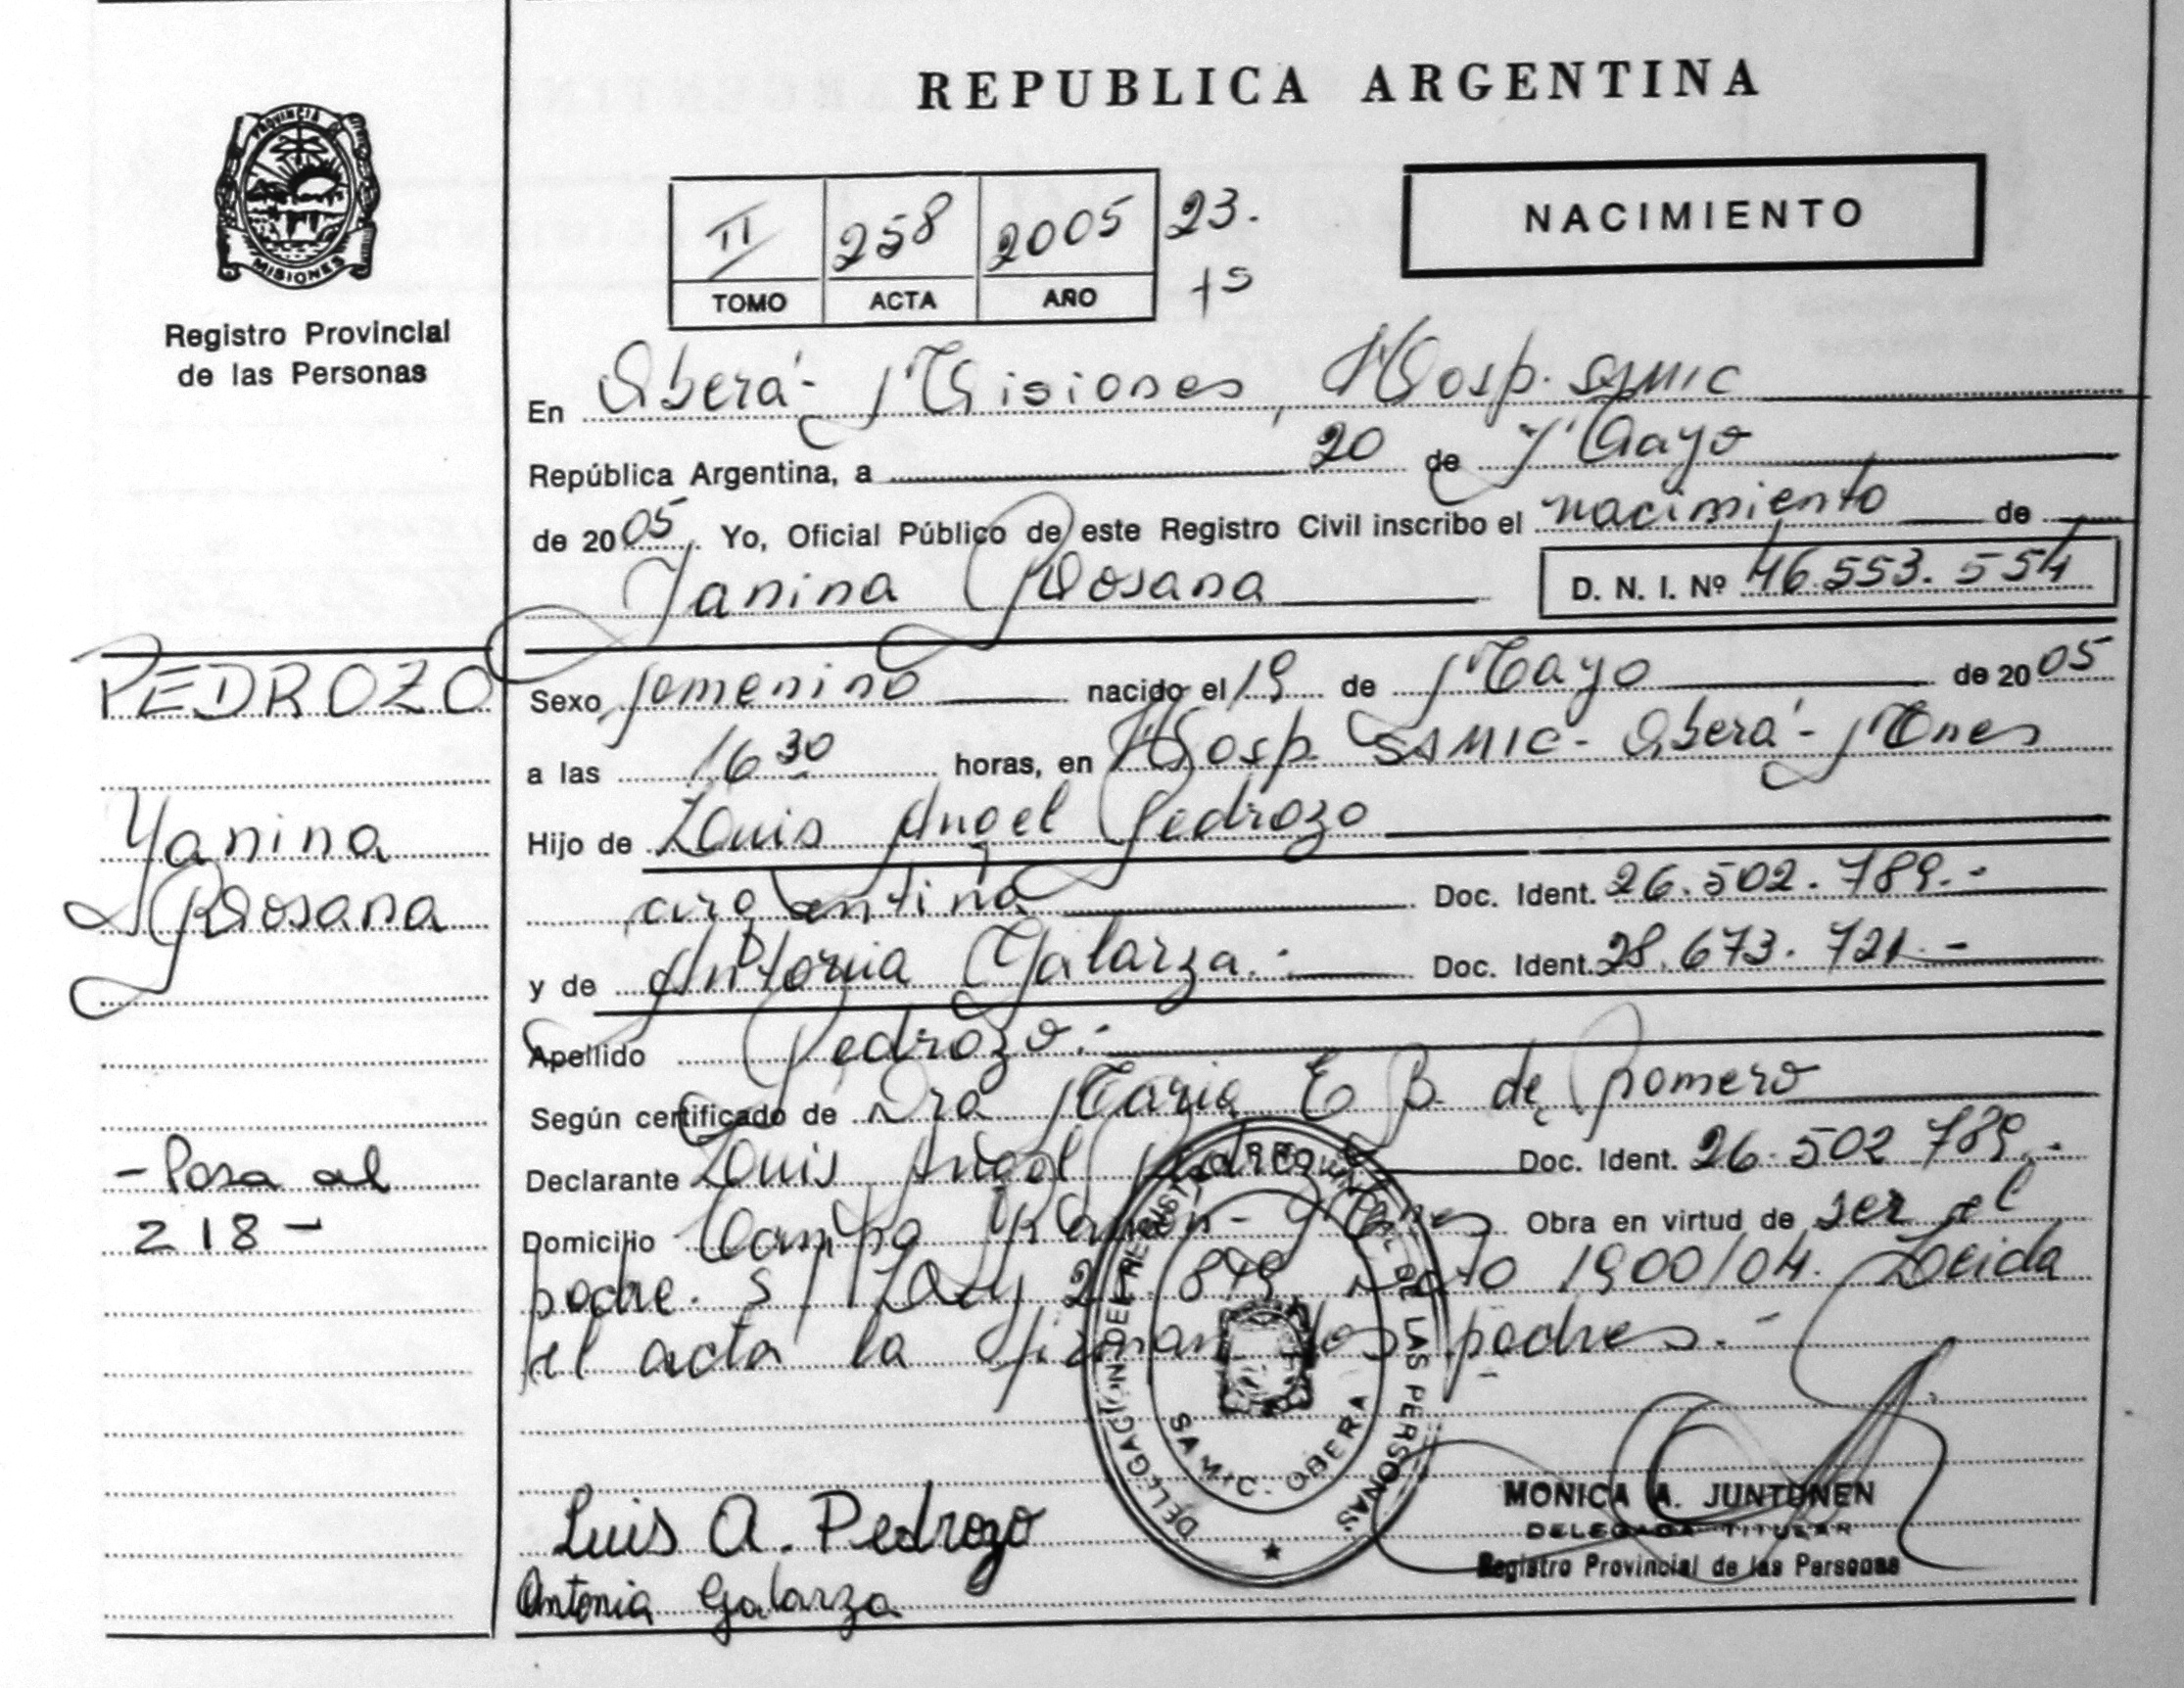 REPUBLICA ARGENTINA
PROVINCIA DE
MISIONES
Registro Provincial
de las Personas
II 258 2005 23.
TOMO ACTA AÑO
NACIMIENTO
En Oberá - Misiones, Hosp. SAMIC
República Argentina, a 20 de Mayo
de 2005. Yo, Oficial Público de este Registro Civil inscribo el nacimiento de
Yanina Rosana D. N. I. Nº 46.553.554
PEDROZO
Yanina
Rosana
- Pasa al
218 -
Sexo femenino nacido el 19 de Mayo de 2005
a las 16 30 horas, en Hosp. SAMIC - Oberá - Mnes
Hijo de Luis Angel Pedrozo
argentina Doc. Ident. 26.502.789.-
y de Antonia Galarza.- Doc. Ident. 28.673.721.-
Apellido Pedrozo.-
Según certificado de Dra Maria E B. de Romero
Declarante Luis Angel Pedrozo Doc. Ident. 26.502.789.-
Domicilio Campo Ramón - Mnes Obra en virtud de ser el
padre. s/ Ley 2 879 Dcto 1900/04. Leida
el acta la firman los padres.-
DELEGACION DEL REGISTRO PROVINCIAL DE LAS PERSONAS
SAMIC - OBERA
Luis A. Pedrozo
Antonia Galarza
MONICA A. JUNTUNEN
DELEGADA TITULAR
Registro Provincial de las Personas